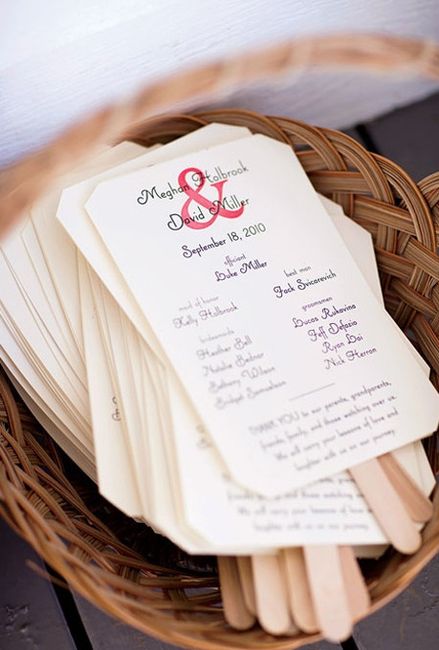 Meghan Holbrook
&
David Miller
September 18, 2010
officiant
Luke Miller
maid of honor
Kelly Holbrook
bridesmaids
Heather Bell
Natalie Bednar
Bethany Wilson
Bridget Samuelson
best man
Jack Svicarevich
groomsmen
Lucas Rukavina
Jeff Defazio
Ryan Lai
Nick Herron
THANK YOU to our parents, grandparents,
friends, family, and those watching over us.
We will carry your lessons of love and
laughter with us on our journey.
friends, family,
We will carry your lessons of love and
laughter with us on our journey.